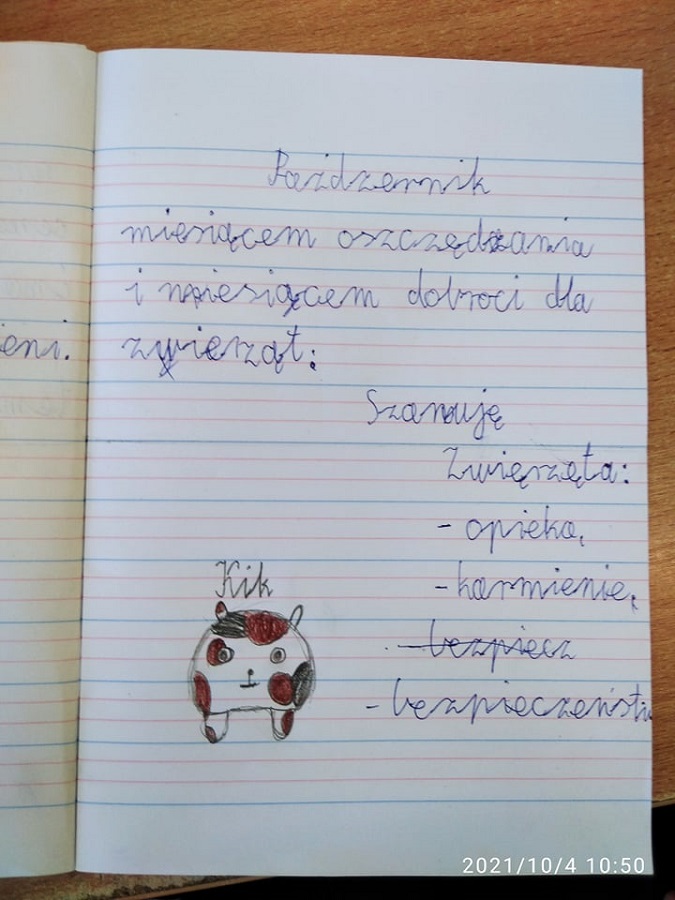 Październik
miesiącem oszczędzania
i miesiącem dobroci dla
eni. zwierząt:
Szanuję
Zwięrzęta:
- opieka,
- karmienie,
Kik
- bezpiecz
- bezpieczeństw
2021/10/4 10:50